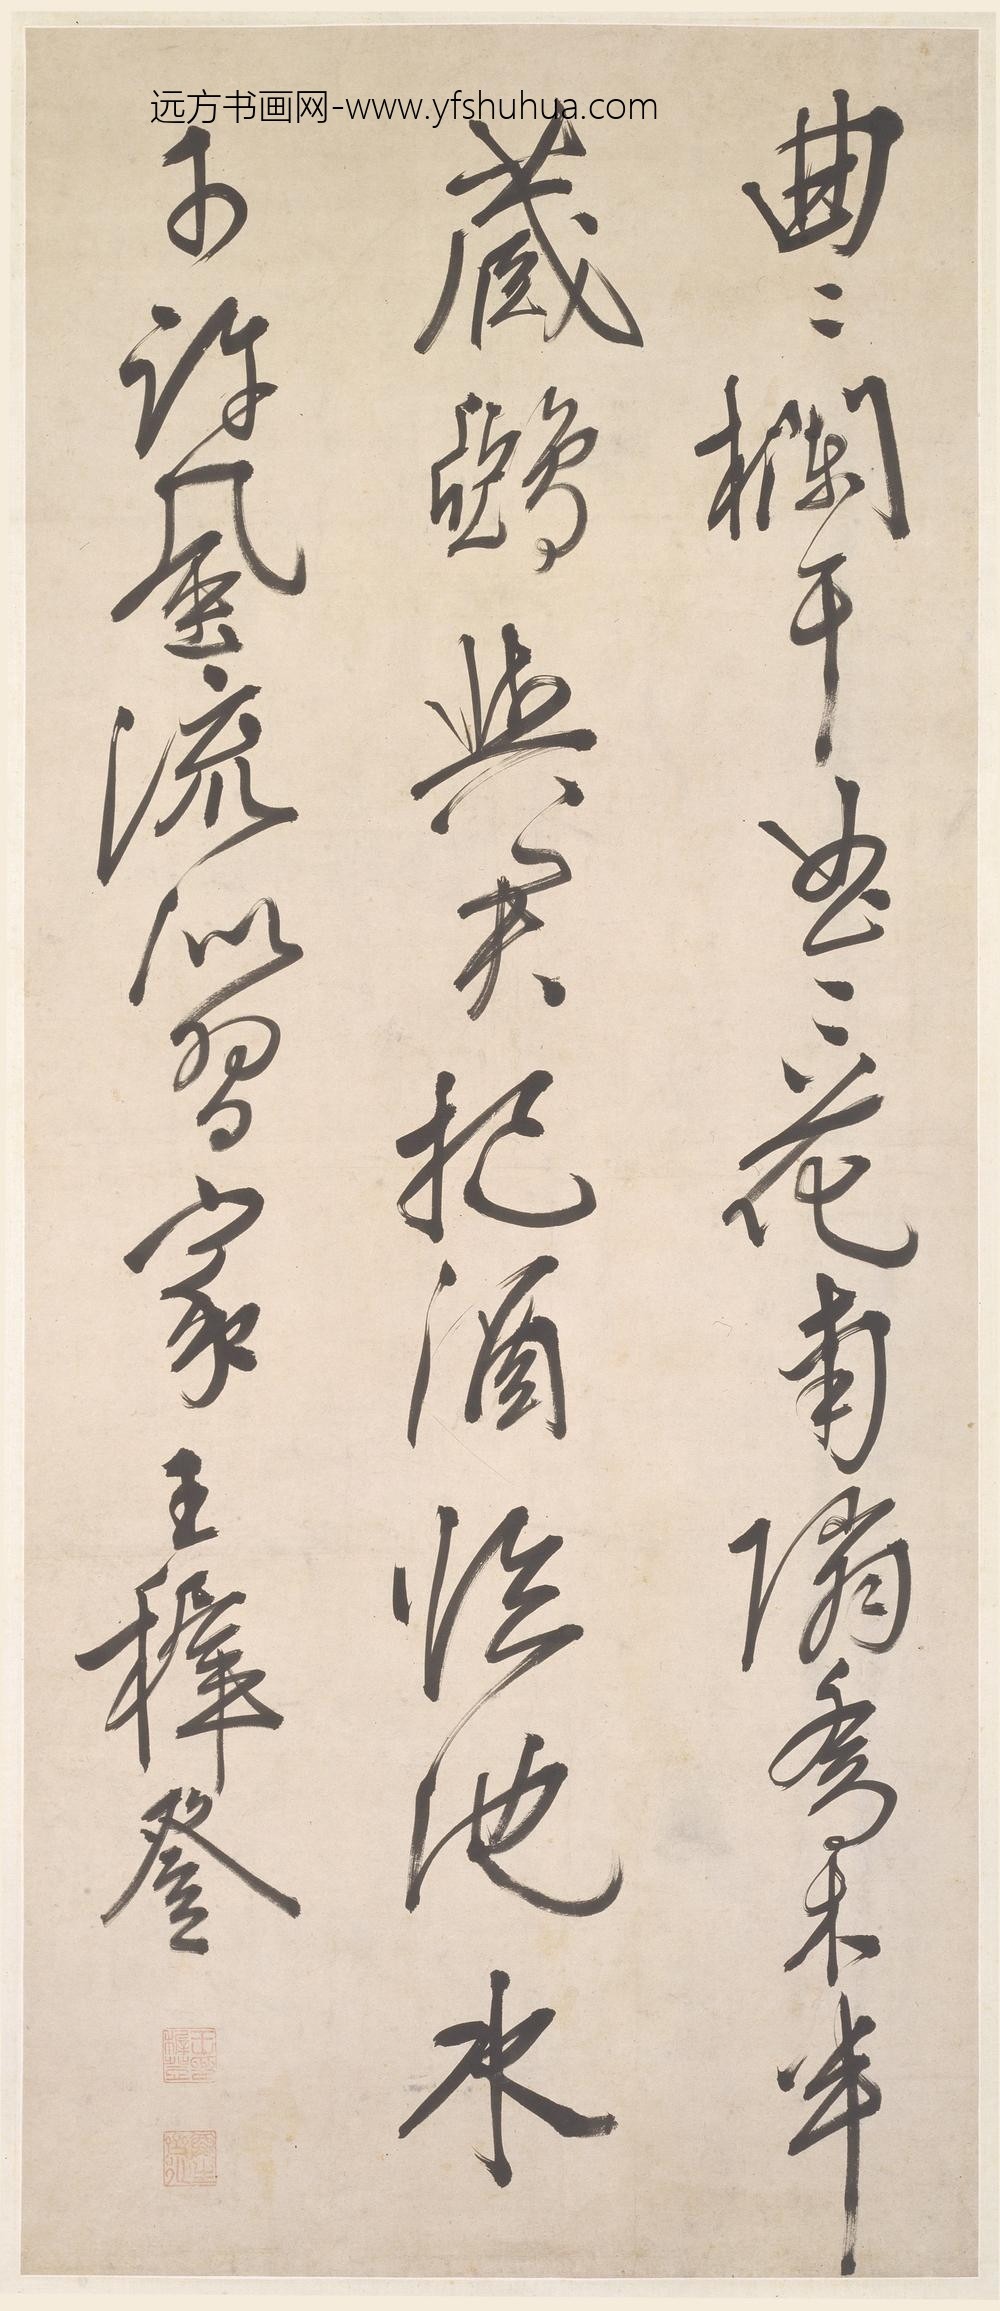 远方书画网-www.yfshuhua.com
曲〻欄干曲〻花南隣喬木半
藏鵶與君把酒臨池水
不許風流似習家王穉登